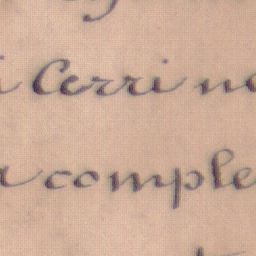 i Cerri no
a comple